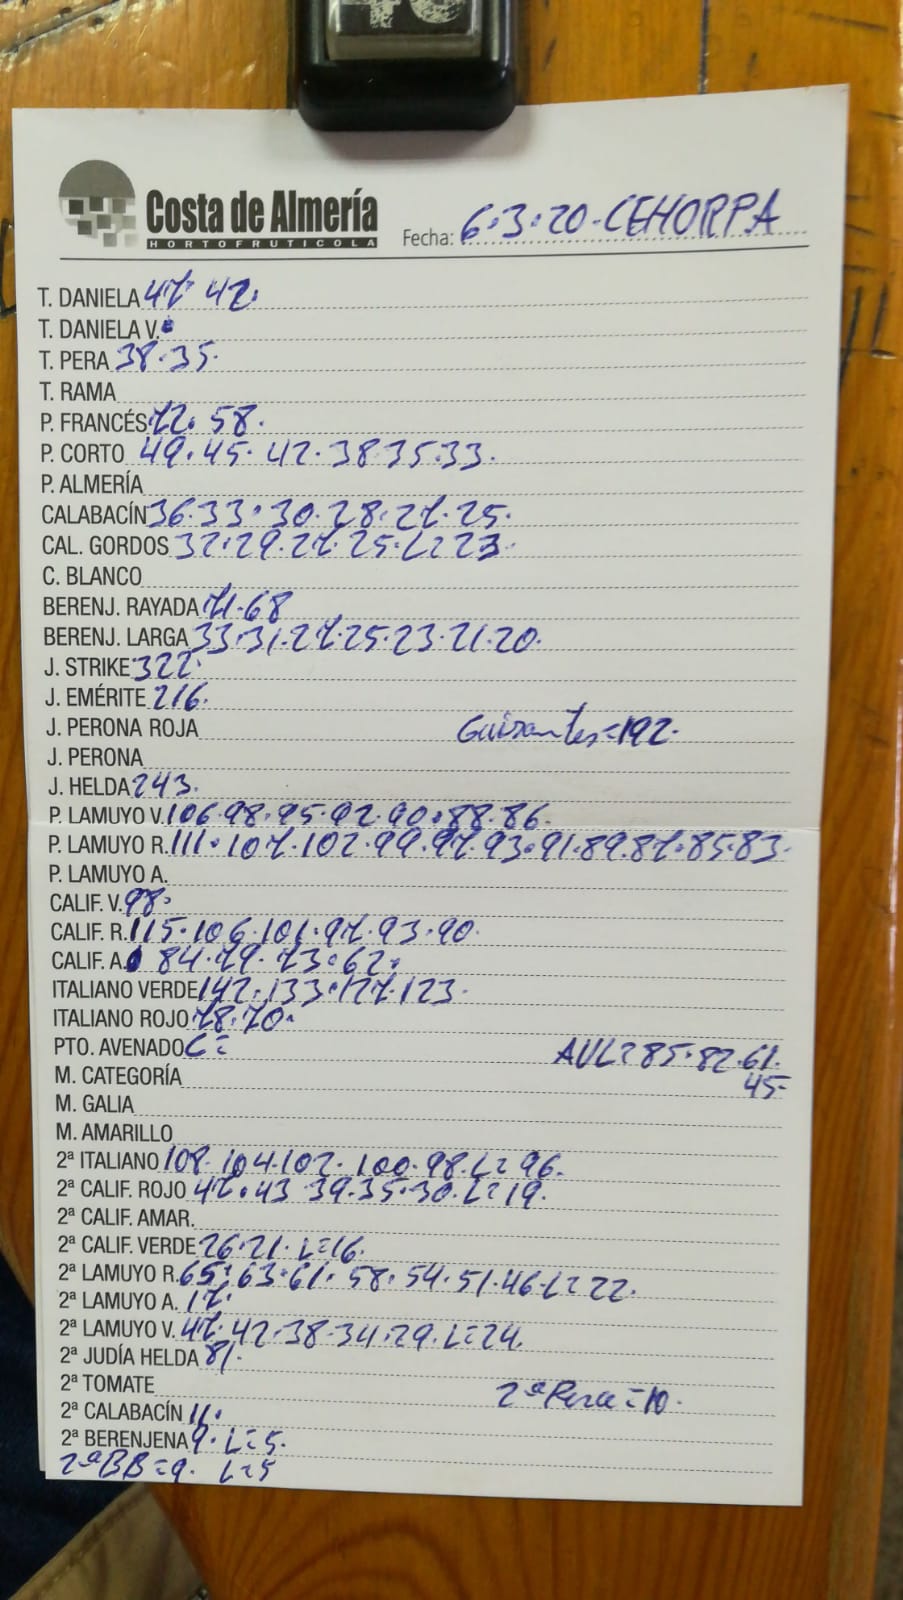 Costa de Almería
HORTOFRUTICOLA
Fecha: 6.3.20. CEHORPA
T. DANIELA 47 42.
T. DANIELA V.
T. PERA 38.35.
T. RAMA
P. FRANCÉS 72. 58.
P. CORTO 49.45.42.38 35.33.
P. ALMERÍA
CALABACÍN 36.33.30.28.27.25.
CAL. GORDOS 32.29.27.25.L=23.
C. BLANCO
BERENJ. RAYADA 71.68
BERENJ. LARGA 33.31.27.25.23.21.20.
J. STRIKE 322.
J. EMÉRITE 216.
J. PERONA ROJA Guisantes=192.
J. PERONA
J. HELDA 243.
P. LAMUYO V. 106.98.95.92.90.88.86.
P. LAMUYO R. 111.107.102.99.97.93.91.89.87.85.83.
P. LAMUYO A.
CALIF. V. 98.
CALIF. R. 115.106.101.97.93.90.
CALIF. A. 84.79.73.62.
ITALIANO VERDE 142.133.127.123.
ITALIANO ROJO 78.70.
PTO. AVENADO C= AVL=85.82.61.
45.
M. CATEGORÍA
M. GALIA
M. AMARILLO
2ª ITALIANO 108.104.102.100.98.L=96.
2ª CALIF. ROJO 47.43 39.35.30.L=19.
2ª CALIF. AMAR.
2ª CALIF. VERDE 26.21. L=16.
2ª LAMUYO R. 65.63.61.58.54.51.46.L=22.
2ª LAMUYO A. 17.
2ª LAMUYO V. 47.42.38.34.29.L=24.
2ª JUDÍA HELDA 81.
2ª TOMATE 2ª Pera=10.
2ª CALABACÍN 11.
2ª BERENJENA 9. L=5.
2ª BB=9. L=5